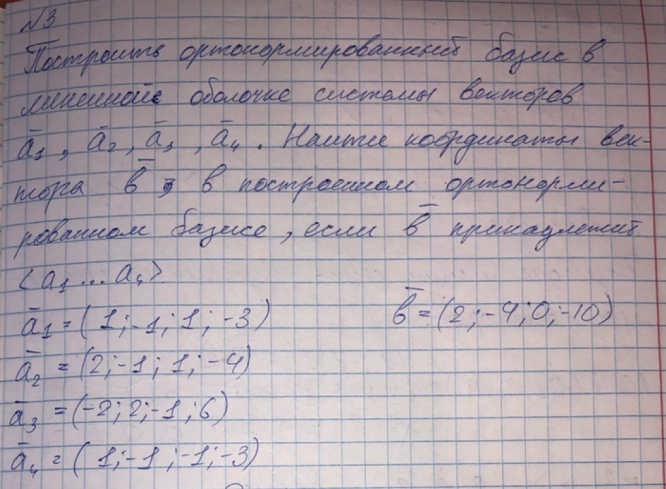 №3
Построить ортонормированный базис в
линейной оболочке системы векторов
a̅₁, a̅₂, a̅₃, a̅₄. Найти координаты век-
тора b̅ в построенном ортонорми-
рованном базисе, если b̅ принадлежит
<a₁...a₄>
a̅₁ = (1; -1; 1; -3) b̅ = (2; -4; 0; -10)
a̅₂ = (2; -1; 1; -4)
a̅₃ = (-2; 2; -1; 6)
a̅₄ = (1; -1; -1; -3)